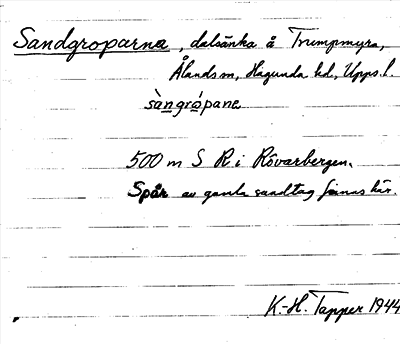 Sandgroparna, dalsänka å Trumpmyra,
Ålands sn, Hagunda hd, Upps. l.
sàngrópana
500 m S R i Rövarbergen.
Spår av gamla sandtag finnas här.
K.-H. Tapper 1944